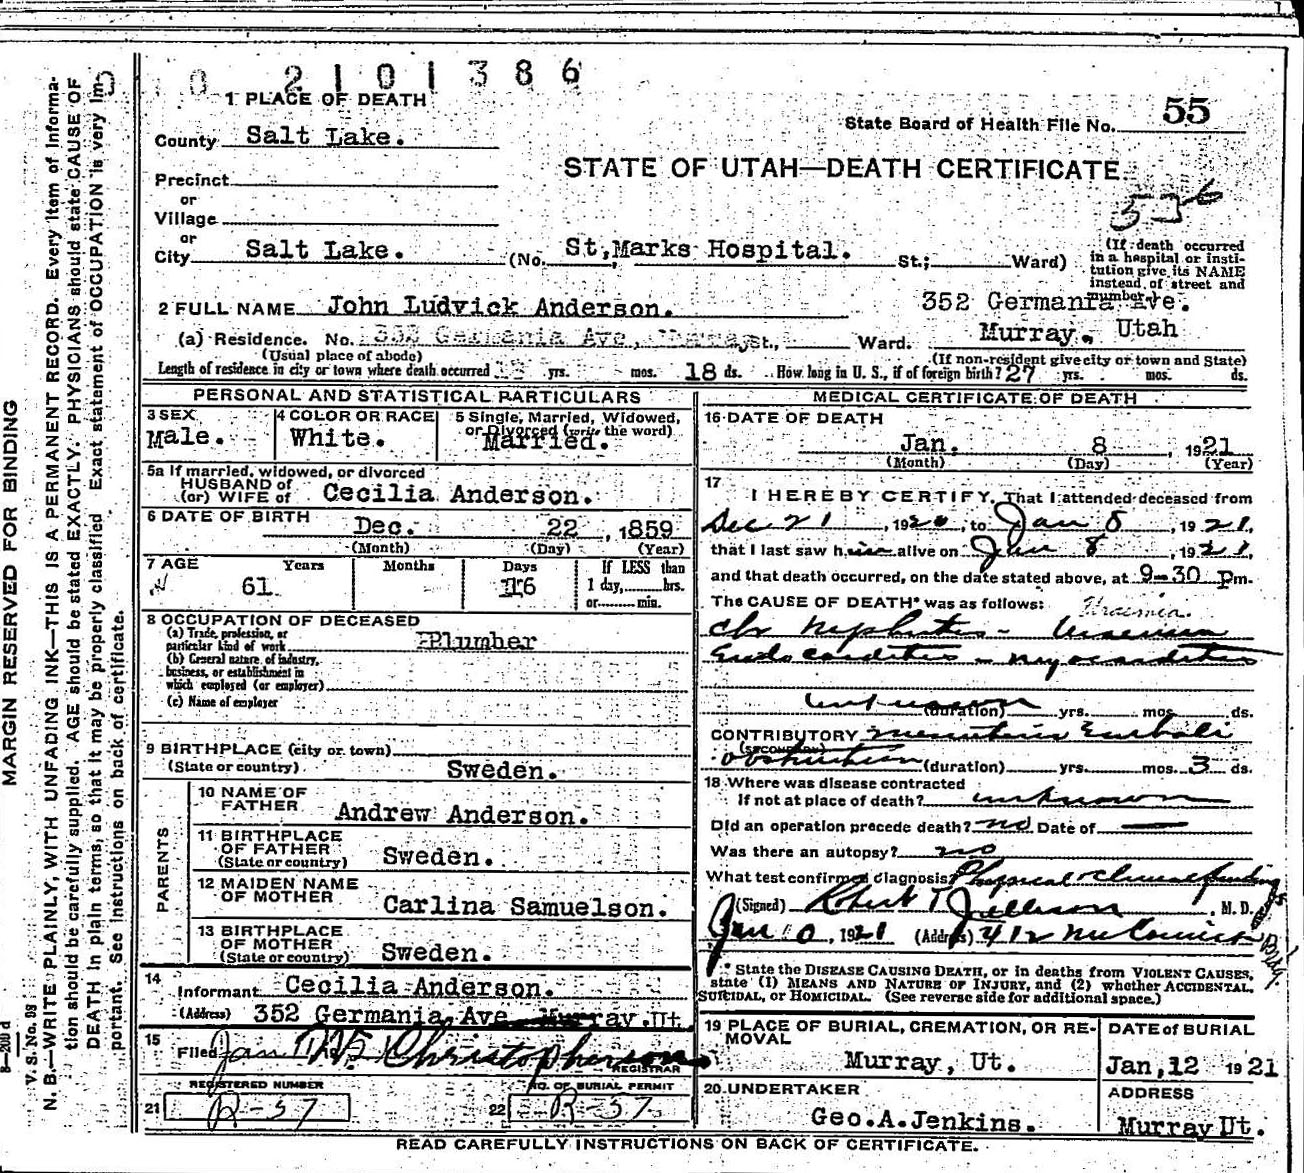 0 2101386
1 PLACE OF DEATH
County Salt Lake.
State Board of Health File No. 55
STATE OF UTAH—DEATH CERTIFICATE
Precinct
or
Village
or
City Salt Lake. (No. St,Marks Hospital. St.; Ward)
(If death occurred
in a hospital or insti-
tution give its NAME
instead of street and
number.)
2 FULL NAME John Ludvick Anderson.
352 Germania Ave.
Murray, Utah
(a) Residence. No. 352 Germania Ave., Murray St., Ward.
(Usual place of abode)
(If non-resident give city or town and State)
Length of residence in city or town where death occurred yrs. mos. 18 ds. How long in U. S., if of foreign birth? 27 yrs. mos. ds.
PERSONAL AND STATISTICAL PARTICULARS
3 SEX
Male.
4 COLOR OR RACE
White.
5 Single, Married, Widowed,
or Divorced (write the word)
Married.
5a If married, widowed, or divorced
HUSBAND of
(or) WIFE of Cecilia Anderson.
6 DATE OF BIRTH Dec. 22, 1859
(Month) (Day) (Year)
7 AGE Years Months Days If LESS than
61 16 1 day, hrs.
or min.
8 OCCUPATION OF DECEASED
(a) Trade, profession, or
particular kind of work Plumber
(b) General nature of industry,
business, or establishment in
which employed (or employer)
(c) Name of employer
9 BIRTHPLACE (city or town)
(State or country) Sweden.
PARENTS
10 NAME OF
FATHER Andrew Anderson.
11 BIRTHPLACE
OF FATHER
(State or country) Sweden.
12 MAIDEN NAME
OF MOTHER Carlina Samuelson.
13 BIRTHPLACE
OF MOTHER
(State or country) Sweden.
14
Informant Cecilia Anderson.
(Address) 352 Germania Ave Murray.Ut.
15
Filed Jan Christopherson
REGISTRAR
REGISTERED NUMBER NO. OF BURIAL PERMIT
21 R-57 22 R-57
MEDICAL CERTIFICATE OF DEATH
16 DATE OF DEATH
Jan. 8, 1921
(Month) (Day) (Year)
17
I HEREBY CERTIFY, That I attended deceased from
Dec 21, 1920, to Jan 8, 1921,
that I last saw him alive on Jan 8, 1921,
and that death occurred, on the date stated above, at 9-30 Pm.
The CAUSE OF DEATH* was as follows: Uraemia
Chr Nephritis - Uraemia
Endocarditis - Myocarditis
unknown (duration) yrs. mos. ds.
CONTRIBUTORY Emboli
(SECONDARY)
obstruction (duration) yrs. mos. 3 ds.
18 Where was disease contracted
If not at place of death? unknown
Did an operation precede death? no Date of —
Was there an autopsy? no
What test confirmed diagnosis? Physical & clinical findings
(Signed) Robert T Jellison, M. D.
Jan , 1921 (Address) 412 McCornick Bldg.
* State the DISEASE CAUSING DEATH, or in deaths from VIOLENT CAUSES,
state (1) MEANS AND NATURE OF INJURY, and (2) whether ACCIDENTAL,
SUICIDAL, or HOMICIDAL. (See reverse side for additional space.)
19 PLACE OF BURIAL, CREMATION, OR RE-
MOVAL
Murray, Ut.
DATE of BURIAL
Jan, 12 1921
20 UNDERTAKER
Geo.A.Jenkins.
ADDRESS
Murray Ut.
READ CAREFULLY INSTRUCTIONS ON BACK OF CERTIFICATE.
MARGIN RESERVED FOR BINDING
N. B.—WRITE PLAINLY, WITH UNFADING INK—THIS IS A PERMANENT RECORD. Every item of informa-
tion should be carefully supplied. AGE should be stated EXACTLY. PHYSICIANS should state CAUSE OF
DEATH in plain terms, so that it may be properly classified. Exact statement of OCCUPATION is very im-
portant. See instructions on back of certificate.
V. S. No. 98